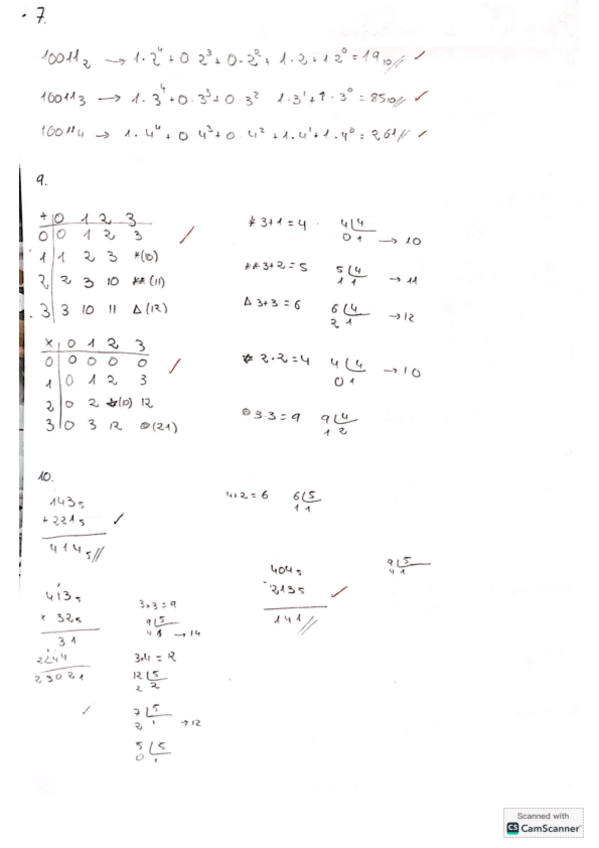 • 7.
10011₂ → 1·2⁴+0 2³+0·2²+ 1·2+1 2⁰=19₁₀// ✓
10011₃ → 1·3⁴+0·3³+0·3² 1·3¹+1·3⁰=85₁₀// ✓
10011₄ → 1·4⁴+0 4³+0 4²+1·4¹+1·4⁰=261// ✓
9.
+ 0 1 2 3
0 0 1 2 3 ✓
1 1 2 3 *(10)
2 2 3 10 **(11)
3 3 10 11 Δ(12)
* 3+1=4 4 4 0 1 → 10
** 3+2=5 5 4 1 1 → 11
Δ 3+3=6 6 4 2 1 → 12
x 0 1 2 3
0 0 0 0 0 ✓
1 0 1 2 3
2 0 2 (10) 12
3 0 3 12 (21)
2·2=4 4 4 0 1 → 10
3·3=9 9 4 1 2
10.
143₅
+221₅ ✓
414₅//
4+2=6 6 5 1 1
404₅
-213₅ ✓
141//
9 5 4 1
413₅
x 32₅
31
2244
23021
✓
3×3=9
9 5
4 1 → 14
3×4=12
12 5
2 2
7 5
2 1 → 12
5 5
0 1
Scanned with
CS CamScanner